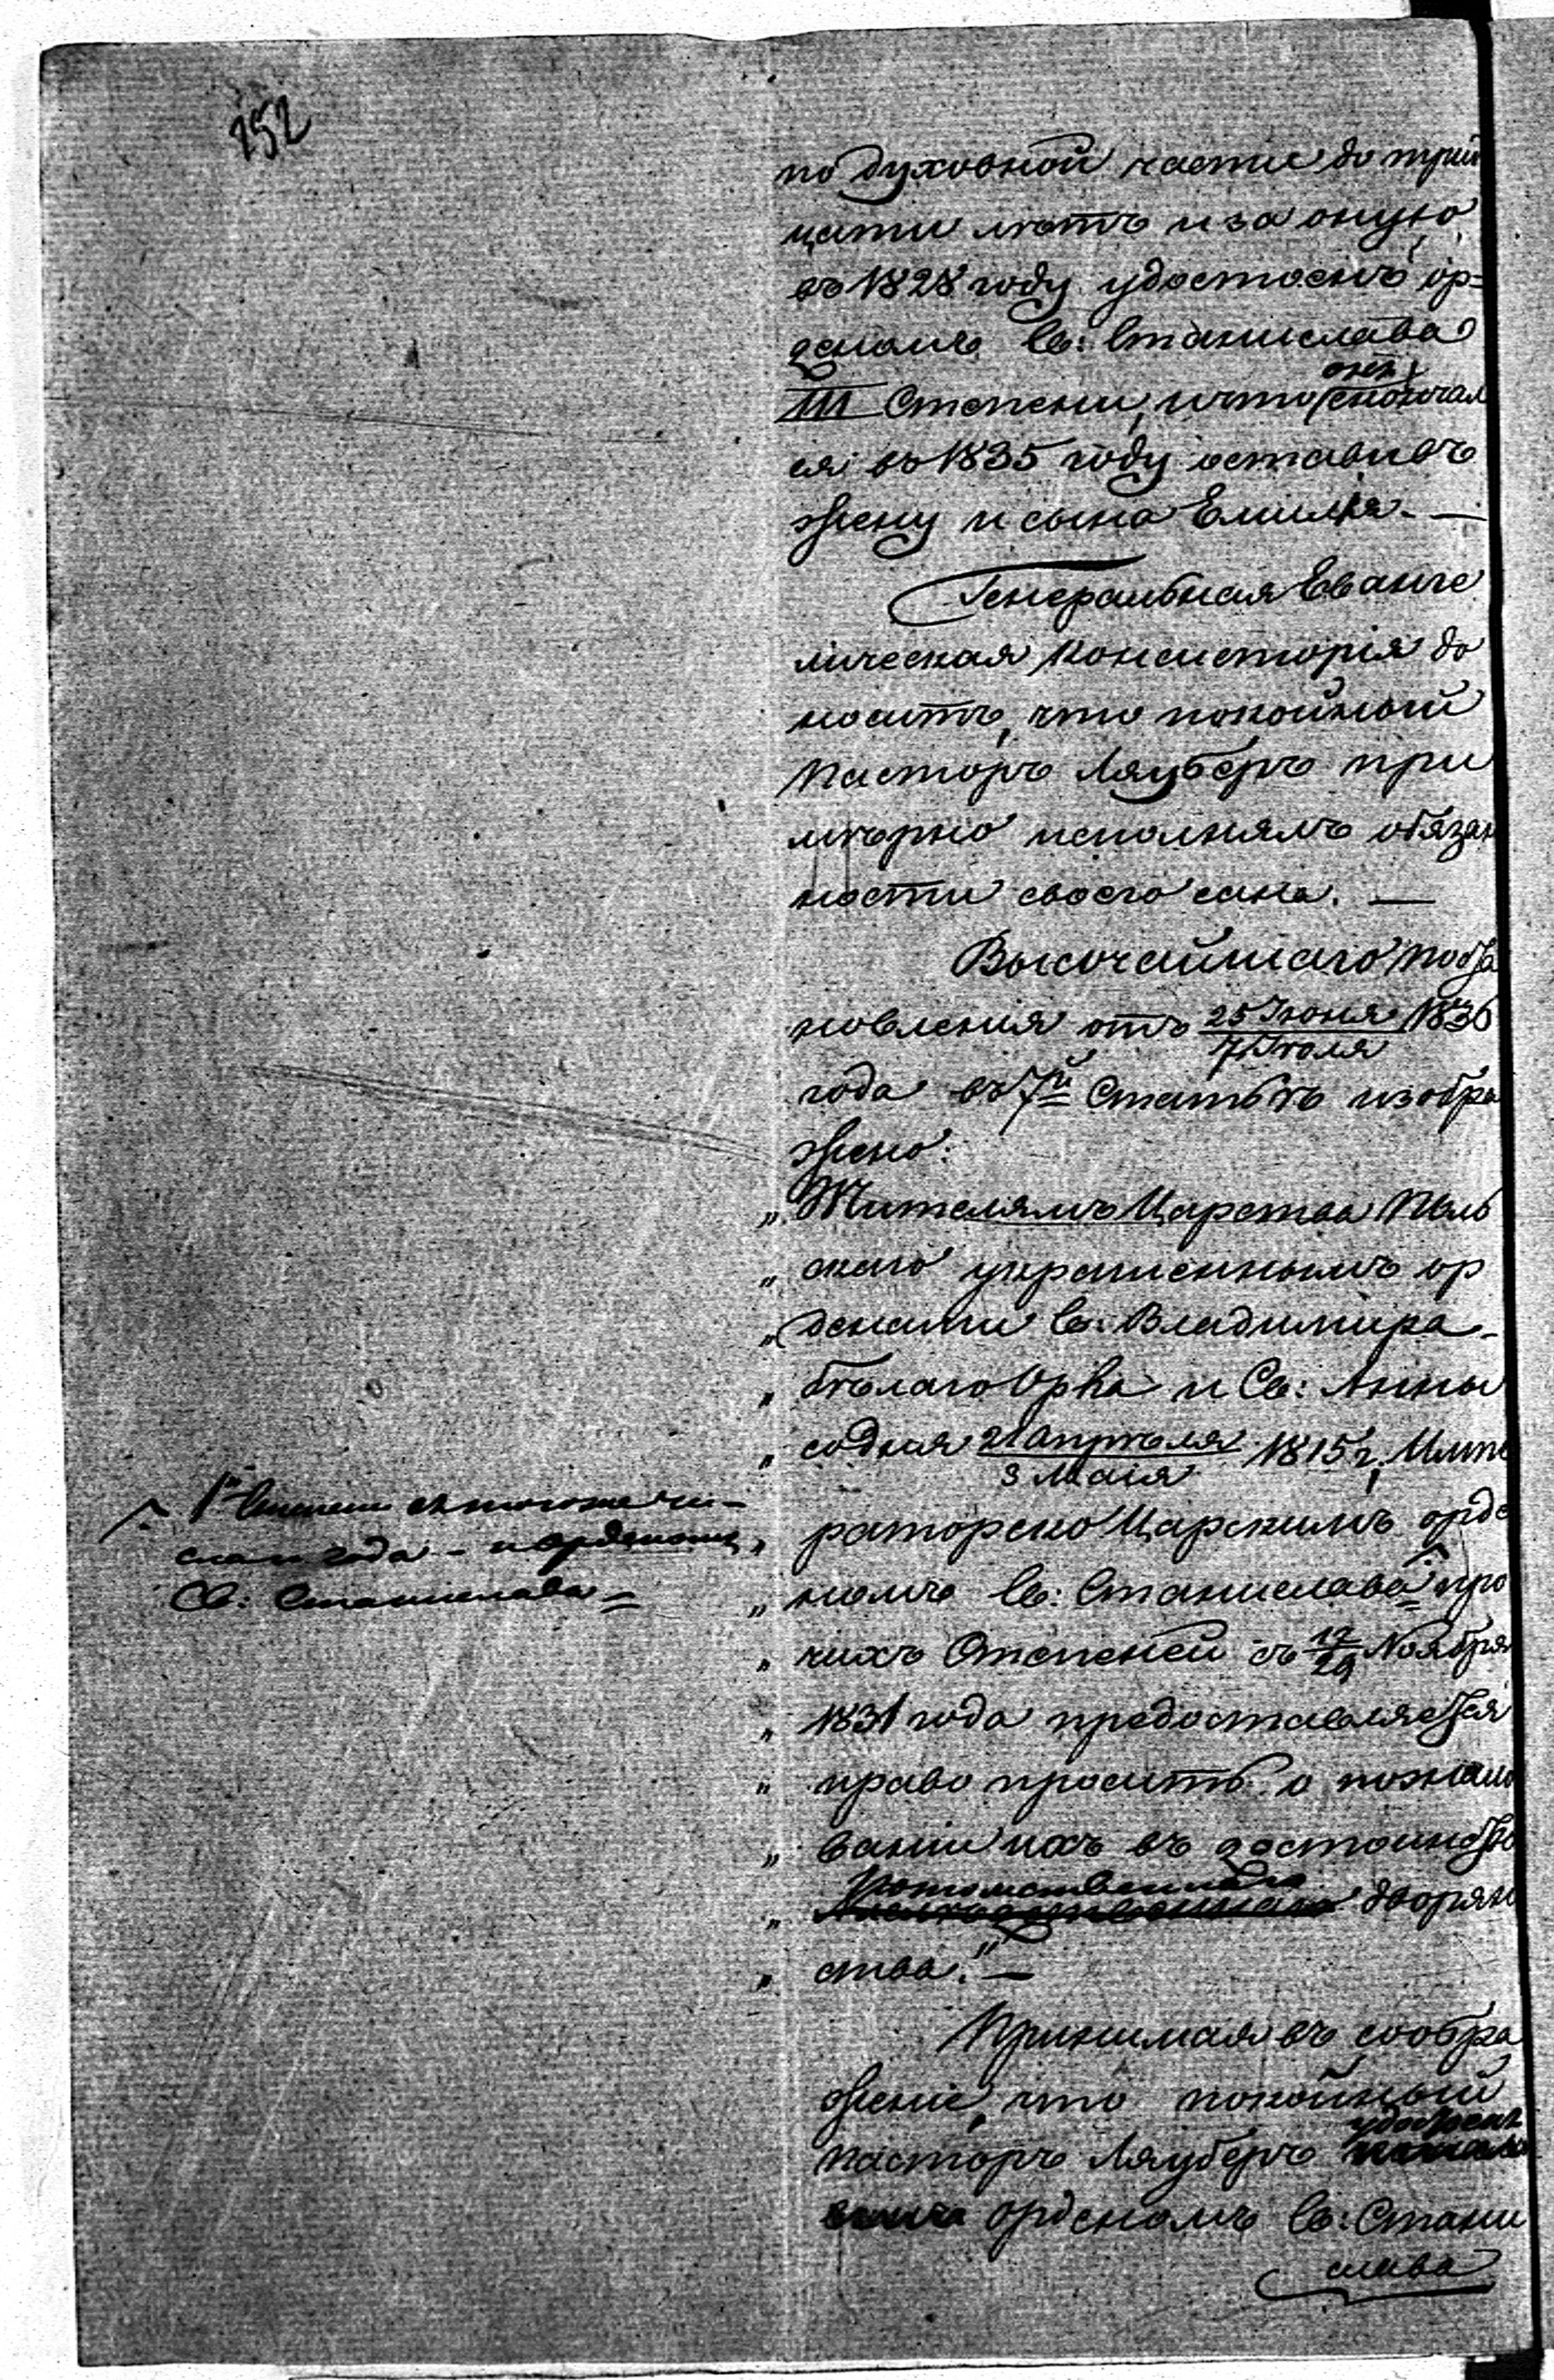 252
по духовной части до трид
цати лѣтъ и за оную
въ 1828 году удостоенъ ор=
деномъ Св: Станислава
III Степени, и что онъ скончал
ся въ 1835 году оставивъ
жену и сына Емилія. —
Генеральная Еванге
лическая Консисторія до
носитъ, что покойный
Пасторъ Ляуберъ при
мѣрно исполнялъ обязан
ности своего сана. —
Высочайшаго поста
новленія отъ 25 Іюня / 7 Іюля 1836
года въ 7й Статьѣ изобра
жено:
„ Жителямъ Царства Поль
„ скаго украшеннымъ ор
„ денами Св: Владимира
„ бѣлаго Орла и Св: Анны
„ со дня 21 Апрѣля / 3 Маія 1815 г, Импе
„ раторско Царскимъ орде
„ номъ Св: Станислава про
„ чихъ Степеней съ 17/29 Ноября
„ 1831 года предоставляется
„ право просить о пожало
„ ваніи ихъ въ достоинство
„ Потомственнаго дворян
„ ства." —
1й Степени съ тогоже чи-
сла и года - и орденомъ
Св: Станислава =
Принимая въ сообра
женіе, что покойный
Пасторъ Ляуберъ удостоенъ
орденомъ Св: Стани
слава